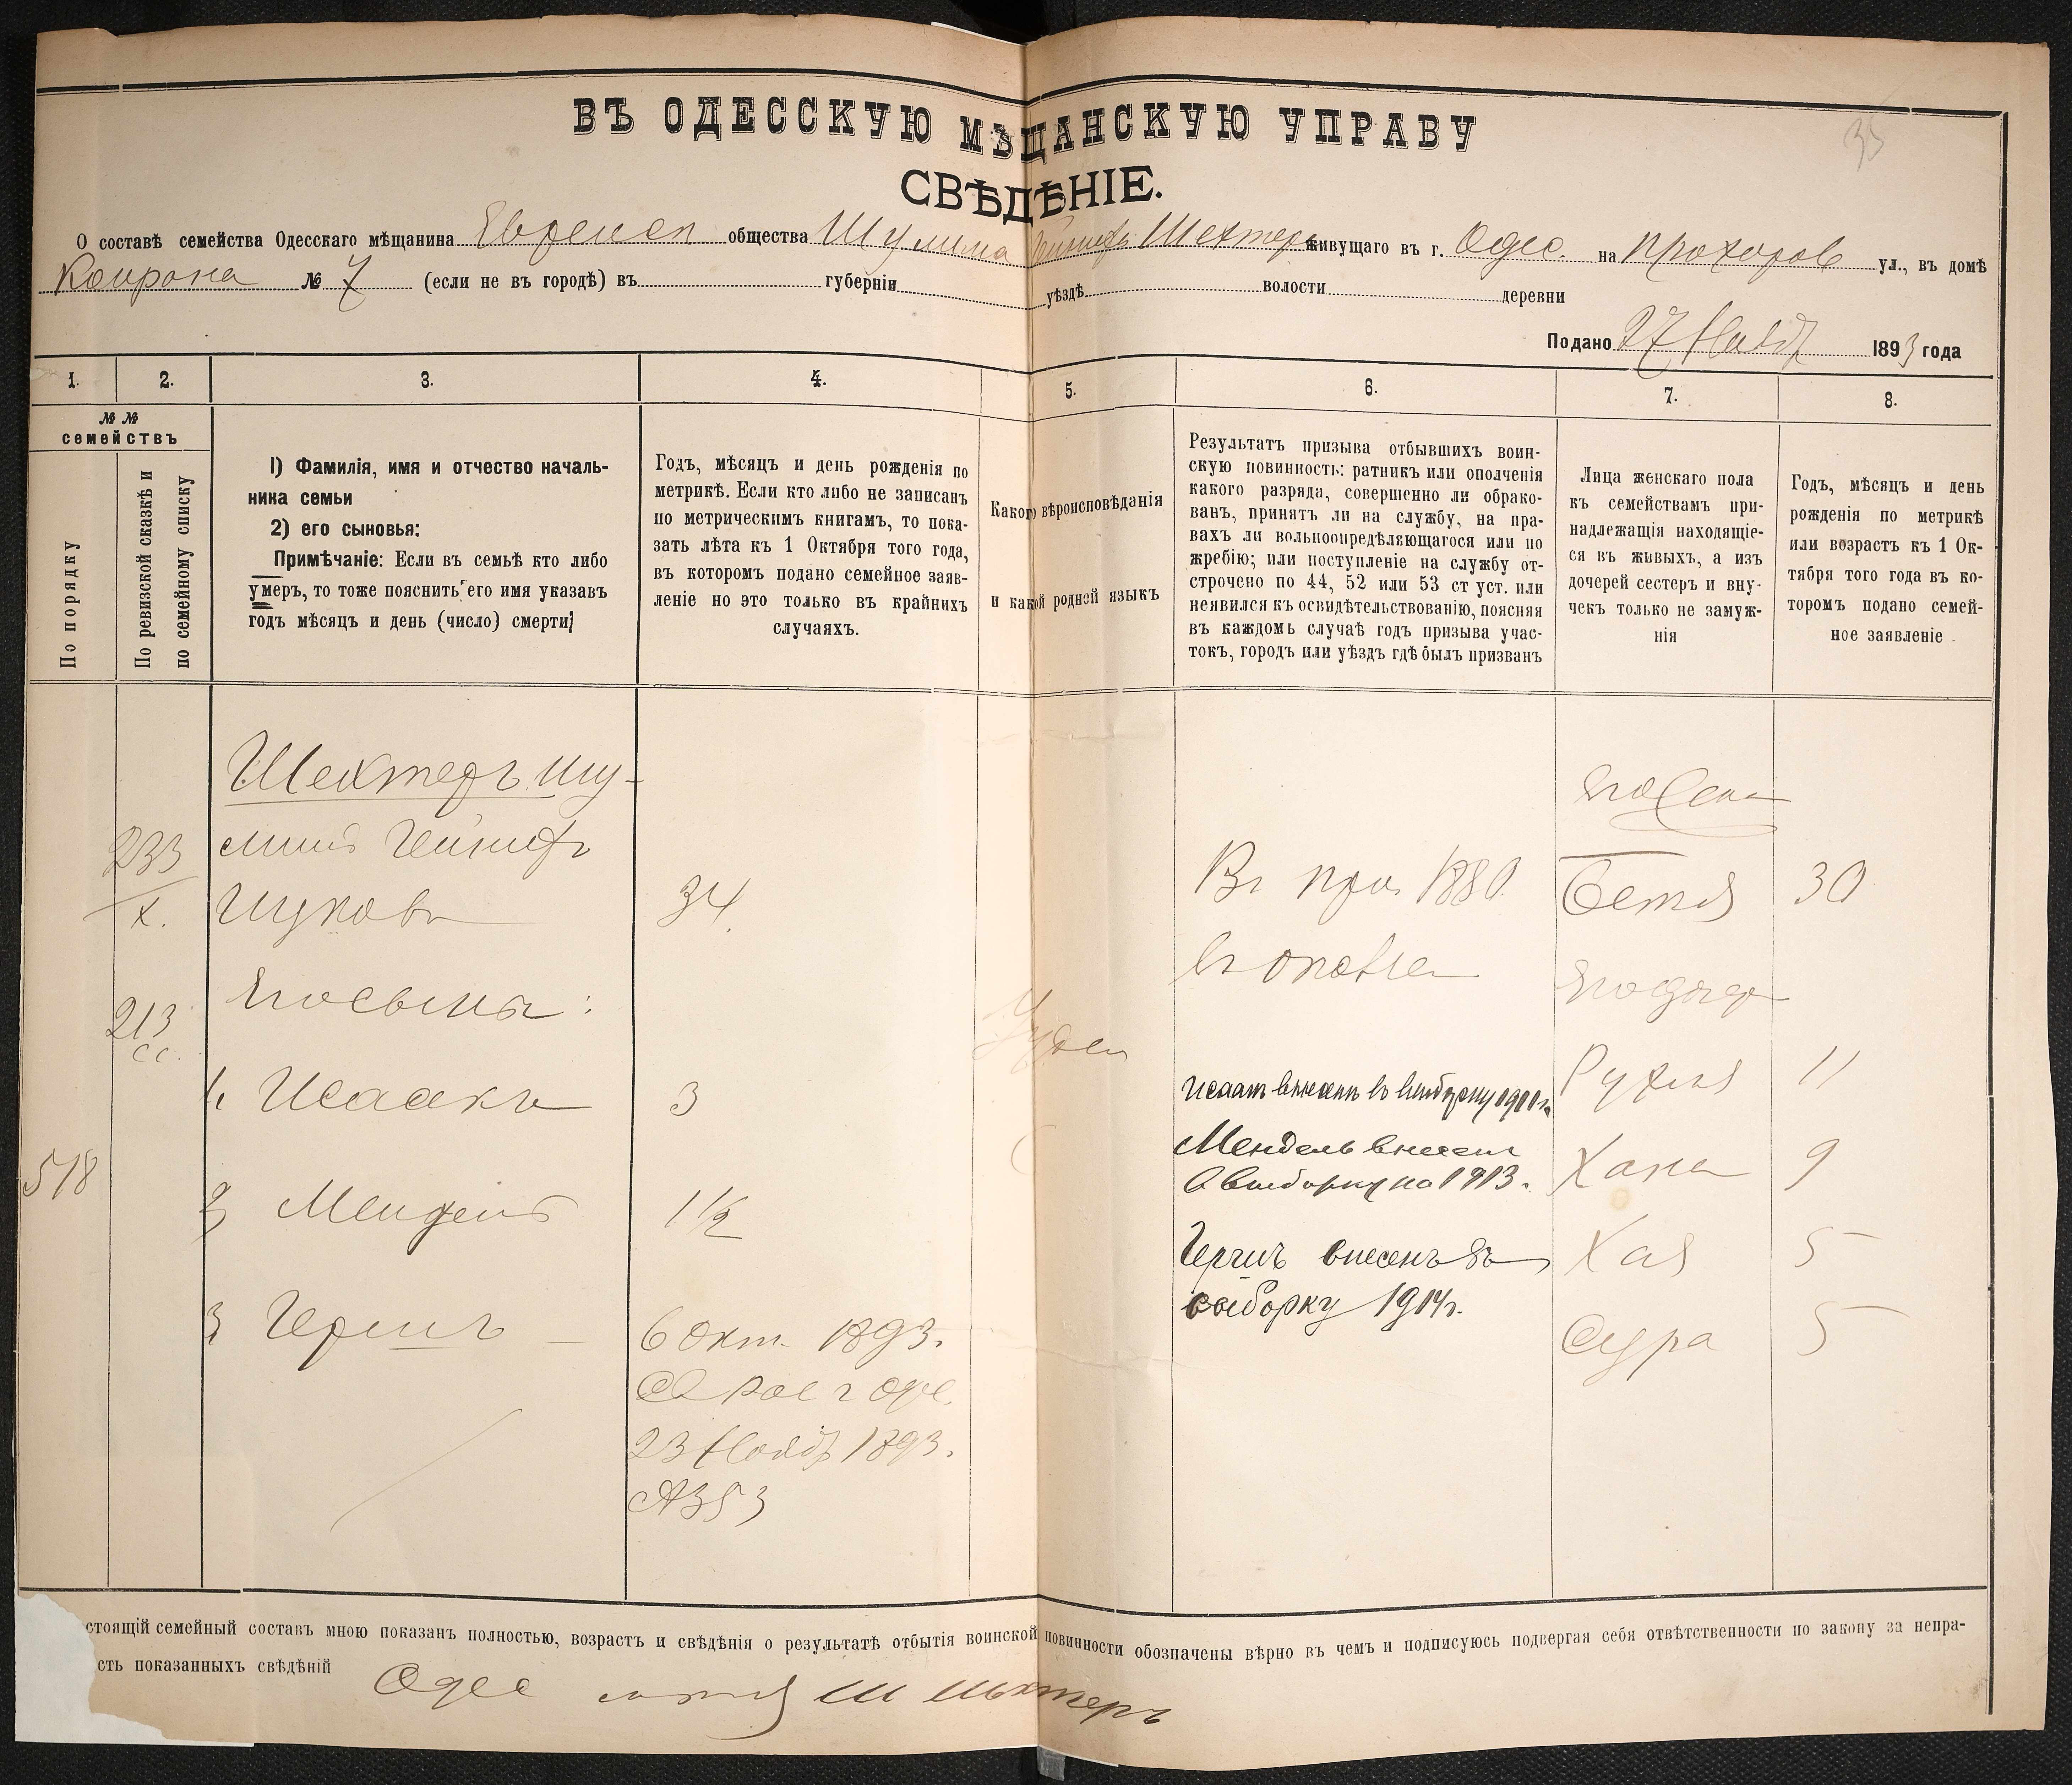 35
ВЪ ОДЕССКУЮ МѢЩАНСКУЮ УПРАВУ
СВѢДѢНІЕ.
О составѣ семейства Одесскаго мѣщанина Евреиск общества Шулима Шехтера живущаго въ г. Одес. на Прохоров ул., въ домѣ
№ 7 (если не въ городѣ) въ губерніи уѣздѣ волости деревни
Подано 27 Нояб 1893 года
1. 2. 3. 4. 5. 6. 7. 8.
№ №
семействъ
По порядку
По ревизской сказкѣ и
по семейному списку
1) Фамилія, имя и отчество началь-
ника семьи
2) его сыновья:
Примѣчаніе: Если въ семьѣ кто либо
умеръ, то тоже пояснить его имя указавъ
годъ мѣсяцъ и день (число) смерти;
Годъ, мѣсяцъ и день рожденія по
метрикѣ. Если кто либо не записанъ
по метрическимъ книгамъ, то пока-
зать лѣта къ 1 Октября того года,
въ которомъ подано семейное заяв-
леніе но это только въ крайнихъ
случаяхъ.
Какого вѣроисповѣданія
и какой родной языкъ
Результатъ призыва отбывшихъ воин-
скую повинность: ратникъ или ополченія
какого разряда, совершенно ли обрако-
ванъ, принятъ ли на службу, на пра-
вахъ ли вольноопредѣляющагося или по
жребію; или поступленіе на службу от-
строчено по 44, 52 или 53 ст уст. или
неявился къ освидѣтельствованію, поясняя
въ каждомъ случаѣ годъ призыва учас-
токъ, городъ или уѣздъ гдѣ былъ призванъ
Лица женскаго пола
къ семействамъ при-
надлежащія находящіе-
ся въ живыхъ, а изъ
дочерей сестеръ и вну-
чекъ только не замуж-
нія
Годъ, мѣсяцъ и день
рожденія по метрикѣ
или возрастъ къ 1 Ок-
тября того года въ ко-
торомъ подано семей-
ное заявленіе
Шехтеръ Шу-
233
х.
34
Въ при 1880.
Бетя 30
Его сыны:
213
сс.
1 Исаакъ 3
Исаак внесенъ въ выборку
Рухля 11
518
2 Мендель 1½
Мендель внесен
в выборку на 1913.
Хана 9
3 Гершъ
6 Окт. 1893.
23 Нояб 1893.
№ 353
Гершъ внесенъ въ
выборку 1914г.
Хая 5
Сура 5
стоящій семейный составъ мною показанъ полностью, возрастъ и свѣдѣнія о результатѣ отбытія воинской повинности обозначены вѣрно въ чемъ и подписуюсь подвергая себя отвѣтственности по закону за непра-
сть показанныхъ свѣдѣній Одес Ш Шехтеръ